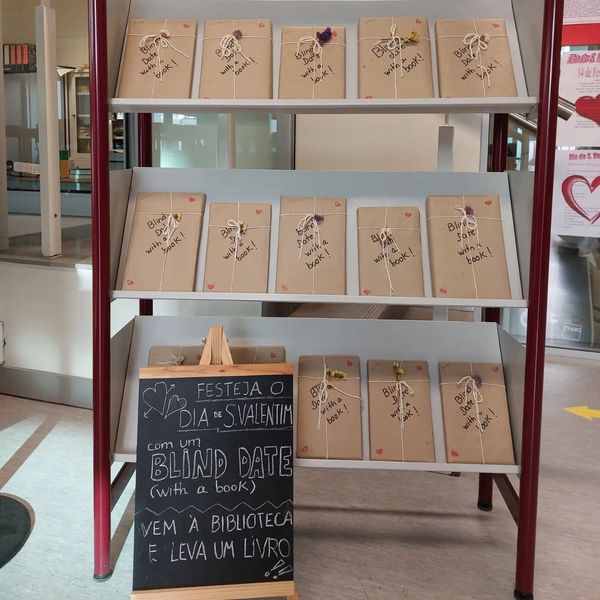 Blind Date with a book!
Blind Date with a book!
Blind Date with a book!
Blind Date with a book!
Blind Date with a book!
Blind Date with a book!
Blind Date with a book!
Blind Date with a book!
Blind Date with a book!
Blind Date with a book!
Blind Date with a book!
Blind Date with a book!
Blind Date with a book!
FESTEJA O
DIA DE S.VALENTIM
com um
BLIND DATE
(with a book)
VEM À BIBLIOTECA
E LEVA UM LIVRO
14 de
fnac